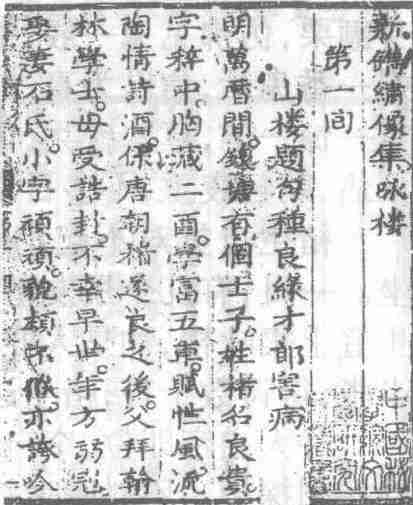 新鐫繡像集咏楼
第一回
山楼题句種良緣才郎害病
明萬曆間錢塘有個士子姓褚名良貴
字中胸藏二酉學富五車賦性風流
陶情詩酒係唐朝褚遂良之後父拜翰
林學士母受誥封不幸早世年方弱冠
娶妻石氏小字貌頗亦誇吟